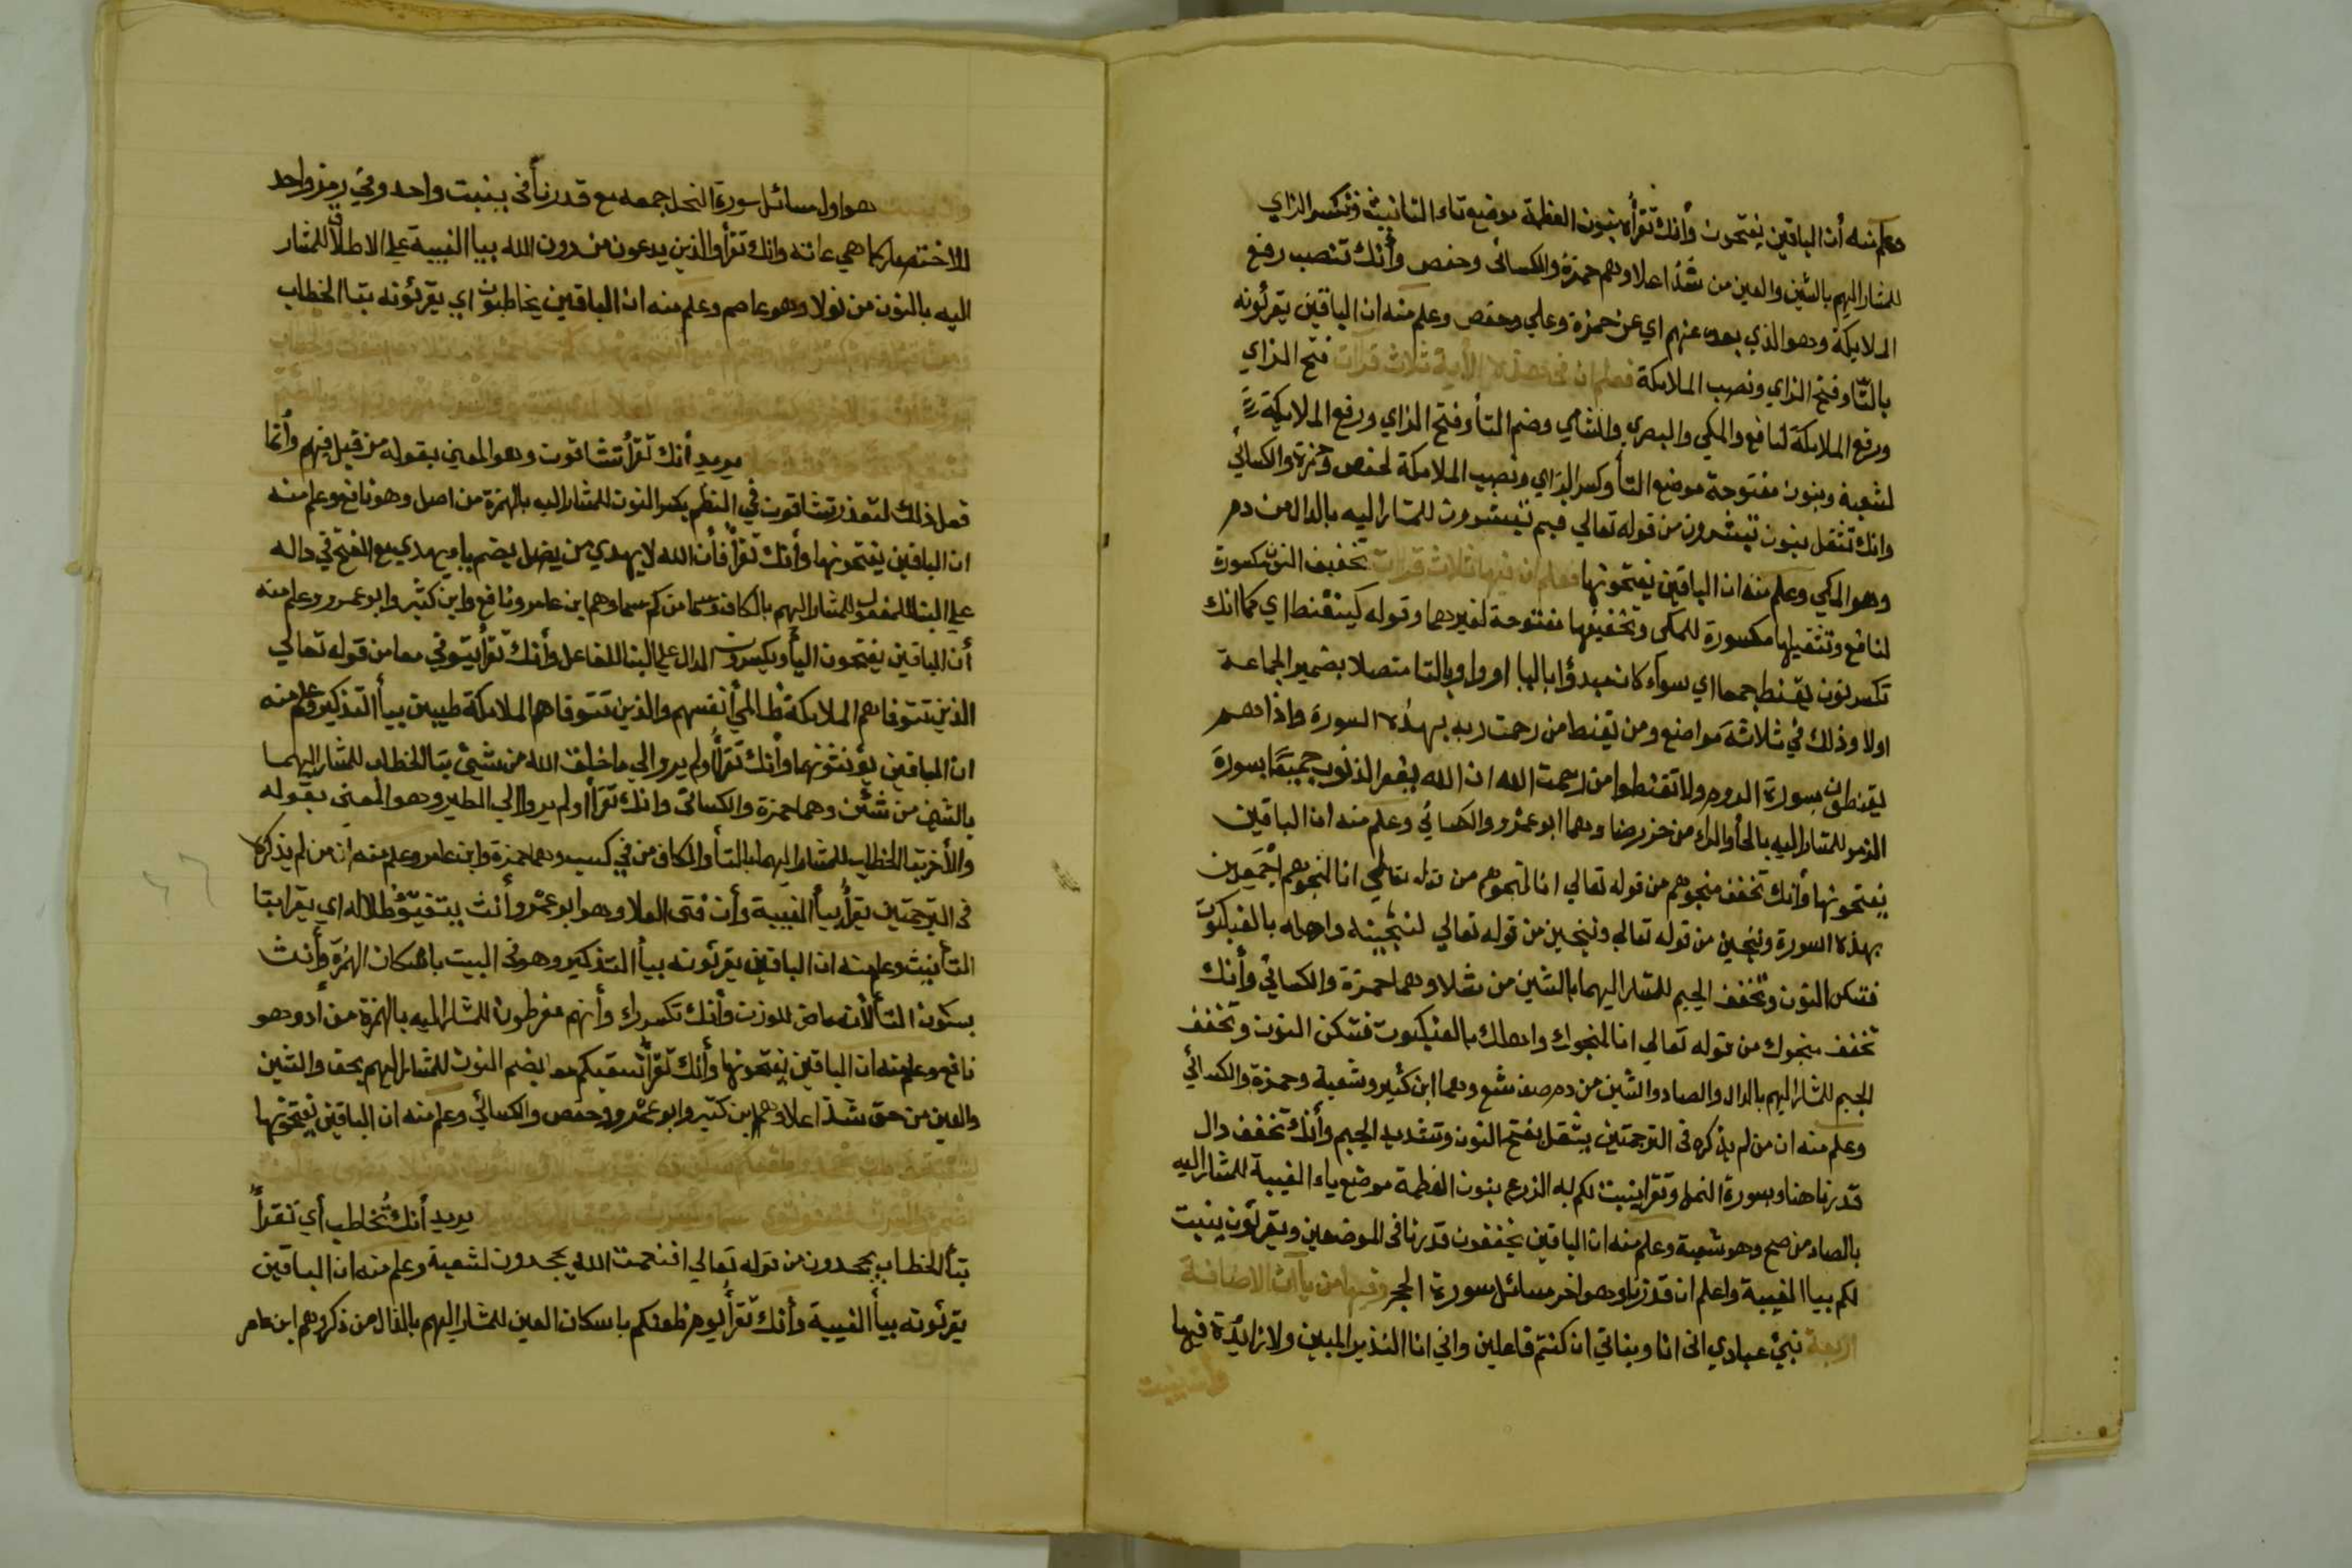 وعلم منه أن الباقين يفتحون وأنك تقرأه بنون العظمة موضع تاء التانيث وتكسر الزاي
للمشار اليهم بالشين والعين من شذا علا وهم حمزة والكسائى وحفص وأنك تنصب رفع
الملايكة وهو الذي بعده عنهم اي عن حمزة وعلي وحفص وعلم منه ان الباقين يقرئونه
بالتا وفتح الزاي ونصب الملايكة فعلم ان فى هذه الأية ثلاث قرات فتح الزاي
ورفع الملايكة لنافع والمكي والبصري والشامي وضم التأ وفتح الزاي ورفع الملايكة
لشعبة وبنون مفتوحة موضع التأ وكسر الزاي ونصب الملايكة لحفص وحمزة والكسائي
وانك تثقل بنون تبشرون من قوله تعالي فبم تبشرون للمشار اليه بالدال من دم
وهو المكي وعلم منه ان الباقين يفتحونها فعلم ان فيها ثلاث قرات تخفيف النون مكسورة
لنافع وتثقيلها مكسورة للمكي وتخفيفها مفتوحة لغيرهما وقوله كيقنط اي كما انك
تكسر نون يقنط جمعا اي سواء كان مبدؤا بالياء او وبالتا متصلا بضمير الجماعة
اولا وذلك في ثلاثة مواضع ومن يقنط من رحمت ربه بهذه السورة واذا هم
يقنطون بسورة الروم ولا تقنطوا من رحمت الله ان الله يغفر الذنوب جميعا بسورة
الزمر للمشار اليه بالحأ والراء من حز رضا وهما ابو عمرو والكسائي وعلم منه ان الباقين
يفتحونها وأنك تخفف منجوهم من قوله تعالي انا لمنجوهم أجمعين
بهذه السورة وننجين من قوله تعالي لننجينه واهله بالعنكبوت
فتسكن النون وتخفف الجيم للمشار اليهما بالشين من شفلا وهما حمزة والكسائي وأنك
تخفف منجوك من قوله تعالي انا منجوك واهلك بالعنكبوت فتسكن النون وتخفف
الجيم للمشار اليهم بالدال والصاد والشين من دم صف شفع وهما ابن كثير وشعبة وحمزة والكسائي
وعلم منه ان من لم يذكره فى الترجمتين يثقل بفتح النون وتشديد الجيم وأنك تخفف دال
قدرنا هنا وبسورة النمل وتقرأ ينبت لكم به الزرع بنون العظمة موضع ياء الغيبة للمشار اليه
بالصاد من صح وهو شعبة وعلم منه ان الباقين يخففون قدرنا فى الموضعين ويقرئون ينبت
لكم بيا الغيبة واعلم ان قدرنا وهو اخر مسائل سورة الحجر وفيها من ياآت الاضافة
اربعة نبئ عبادي انى انا وبناتي ان كنتم فاعلين واني انا النذير المبين ولا زائدة فيها
وانه ينبت
هو اول مسائل سورة النحل جمعه مع قدرنا فى بيت واحد وفي رمز واحد
للاختصار كما هي عادته وانك تقرأ والذين يدعون من دون الله بيا الغيبة علي الاطلاق للمشار
اليه بالنون من نولا وهو عاصم وعلم منه ان الباقين يخاطبون اي يقرئونه بتا الخطاب
يريد أنك تقرأ تشاقون وهو المعني بقوله من قبل فيهم وأنما
فعل ذلك لتعذر تشاقون في النظم بكسر النون للمشار اليه بالهمزة من اصل وهو نافع وعلم منه
ان الباقين يفتحونها وأنك تقرأ فأن الله لا يهدي من يضل بضم ياء يهدي مع الفتح في داله
علي البنا للمفعول للمشار اليهم بالكاف وسما من كم سما وهم ابن عامر ونافع وابن كثير وابو عمرو وعلم منه
أن الباقين يفتحون اليأ ويكسرون الدال علي البنا للفاعل وأنك تقرأ يتوفي معا من قوله تعالي
الذين تتوفاهم الملايكة ظالمي أنفسهم والذين تتوفاهم الملايكة طيبين بيأ التذكير وعلم منه
ان الباقين يؤنثونهما وأنك تقرأ أولم يروا الي ما خلق الله من شيئ بتا الخطاب للمشار اليهما
بالشين من شئن وهما حمزة والكسائى وانك تقرأ اولم يروا الي الطير وهو المعني بقوله
والأخر بتا الخطاب للمشار اليهما بالفأ والكاف من في كسب وهما حمزة وابن عامر وعلم منه ان من لم يذكره
فى الترجمتين يقرأ بيأ الغيبة وأن فتى العلا وهو ابو عمرو أنث يتفيؤ ظلاله اي يقرا بتا
التأنيث وعلم منه ان الباقين يقرئونه بيأ التذكير وهو فى البيت باسكان الهمزة وأنث
بسكون التأ لأنه ماض للوزن وأنك تكسر راء وأنهم مفرطون للمشار اليه بالهمزة من أد وهو
نافع وعلم منه ان الباقين يفتحونها وأنك تقرأ نسقيكم معا بضم النون للمشار اليهم بحق والشين
والعين من حق شذا علا وهم ابن كثير وابو عمرو وحفص والكسائي وعلم منه ان الباقين يفتحونها
يريد أنك تخاطب أي تقرأ
بتأ الخطاب يجحدون من قوله تعالي افنعمت الله يجحدون لشعبة وعلم منه ان الباقين
يقرئونه بيأ الغيبة وأنك تقرأ يوم ظعنكم باسكان العين للمشار اليهم بالذال من ذكر وهم ابن عامر